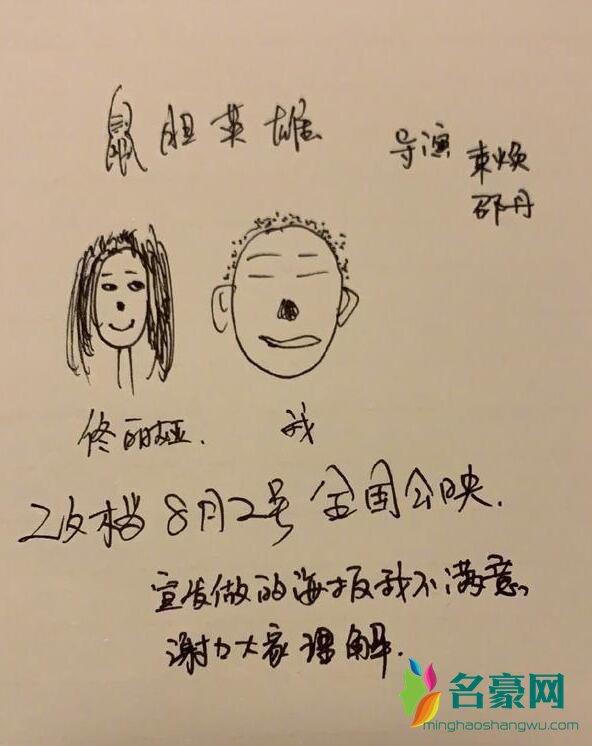 鼠胆英雄
导演 束焕
邵丹
佟丽娅. 我
改档8月2号全国公映.
宣发做的海报我不满意。
谢谢大家理解.
名豪网
minghaoshangwu.com